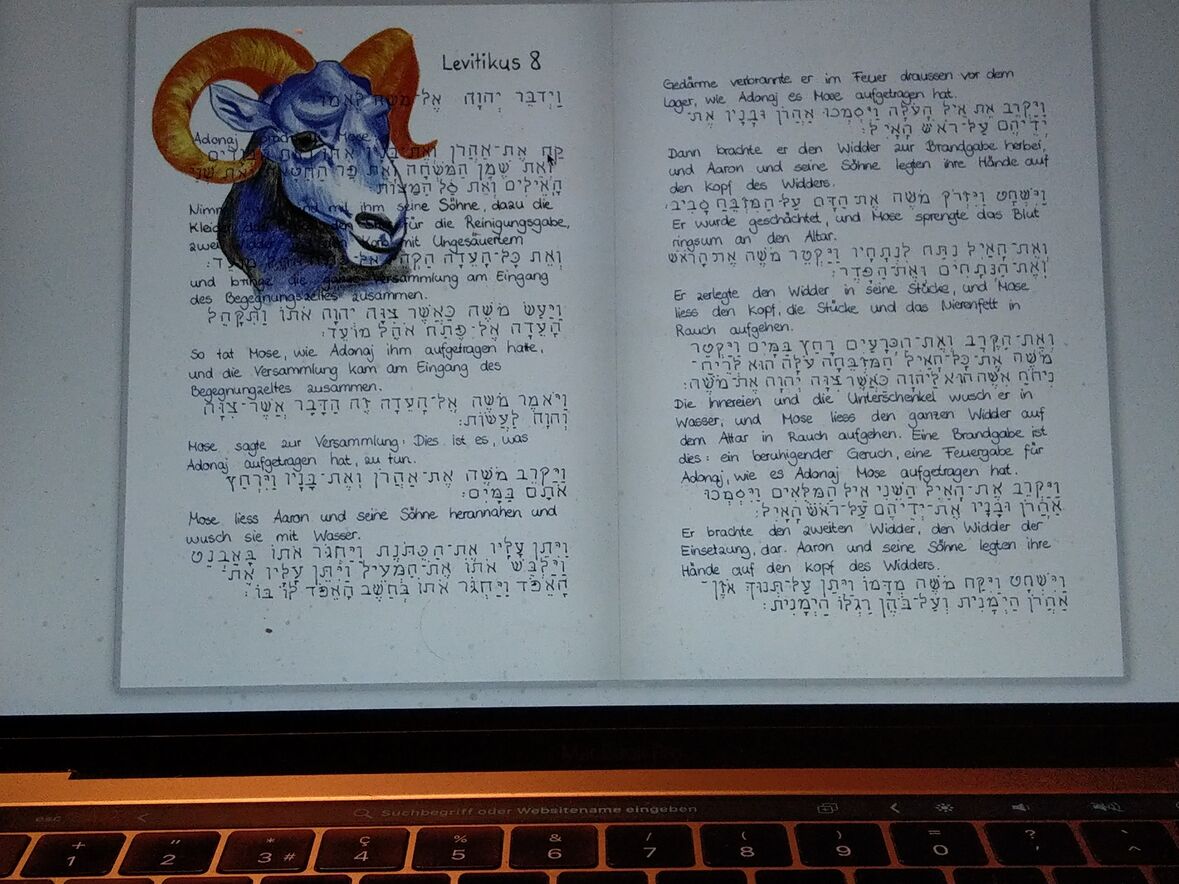 Levitikus 8
וַיְדַבֵּר יְהוָה אֶל־מֹשֶׁה לֵּאמֹר
Adonaj Mose
קַח אֶת־אַהֲרֹן וְאֶת־בָּנָיו אִתּוֹ
וְאֵת שֶׁמֶן הַמִּשְׁחָה וְאֵת פַּר הַחַטָּאת וְאֵת שְׁנֵי
הָאֵילִים וְאֵת סַל הַמַּצּוֹת
Nimm mit ihm seine Söhne, dazu die
Kleider für die Reinigungsgabe,
zwei Korb mit Ungesäuertem
וְאֵת כָּל־הָעֵדָה הַקְהֵל אֶל
und bringe die ganze Versammlung am Eingang
des Begegnungszeltes zusammen.
וַיַּעַשׂ מֹשֶׁה כַּאֲשֶׁר צִוָּה יְהוָה אֹתוֹ וַתִּקָּהֵל
הָעֵדָה אֶל־פֶּתַח אֹהֶל מוֹעֵד׃
So tat Mose, wie Adonaj ihm aufgetragen hatte,
und die Versammlung kam am Eingang des
Begegnungzeltes zusammen.
וַיֹּאמֶר מֹשֶׁה אֶל־הָעֵדָה זֶה הַדָּבָר אֲשֶׁר־צִוָּה
יְהוָה לַעֲשׂוֹת׃
Mose sagte zur Versammlung: Dies ist es, was
Adonaj aufgetragen hat, zu tun.
וַיַּקְרֵב מֹשֶׁה אֶת־אַהֲרֹן וְאֶת־בָּנָיו וַיִּרְחַץ
אֹתָם בַּמָּיִם׃
Mose liess Aaron und seine Söhne herannahen und
wusch sie mit Wasser.
וַיִּתֵּן עָלָיו אֶת־הַכֻּתֹּנֶת וַיַּחְגֹּר אֹתוֹ בָּאַבְנֵט
וַיַּלְבֵּשׁ אֹתוֹ אֶת־הַמְּעִיל וַיִּתֵּן עָלָיו אֶת־
הָאֵפֹד וַיַּחְגֹּר אֹתוֹ בְּחֵשֶׁב הָאֵפֹד לוֹ בּוֹ׃
Gedärme verbrannte er im Feuer draussen vor dem
Lager, wie Adonaj es Mose aufgetragen hat.
וַיַּקְרֵב אֵת אֵיל הָעֹלָה וַיִּסְמְכוּ אַהֲרֹן וּבָנָיו אֶת־
יְדֵיהֶם עַל־רֹאשׁ הָאָיִל׃
Dann brachte er den Widder zur Brandgabe herbei,
und Aaron und seine Söhne legten ihre Hände auf
den Kopf des Widders.
וַיִּשְׁחָט וַיִּזְרֹק מֹשֶׁה אֶת־הַדָּם עַל־הַמִּזְבֵּחַ סָבִיב׃
Er wurde geschächtet, und Mose sprengte das Blut
ringsum an den Altar.
וְאֶת־הָאַיִל נִתַּח לִנְתָחָיו וַיַּקְטֵר מֹשֶׁה אֶת־הָרֹאשׁ
וְאֶת־הַנְּתָחִים וְאֶת־הַפָּדֶר׃
Er zerlegte den Widder in seine Stücke, und Mose
liess den Kopf, die Stücke und das Nierenfett in
Rauch aufgehen.
וְאֶת־הַקֶּרֶב וְאֶת־הַכְּרָעַיִם רָחַץ בַּמָּיִם וַיַּקְטֵר
מֹשֶׁה אֶת־כָּל־הָאַיִל הַמִּזְבֵּחָה עֹלָה הוּא לְרֵיחַ־
נִיחֹחַ אִשֶּׁה הוּא לַיהוָה כַּאֲשֶׁר צִוָּה יְהוָה אֶת־מֹשֶׁה׃
Die Innereien und die Unterschenkel wusch er in
Wasser, und Mose liess den ganzen Widder auf
dem Altar in Rauch aufgehen. Eine Brandgabe ist
dies: ein beruhigender Geruch, eine Feuergabe für
Adonaj, wie es Adonaj Mose aufgetragen hat.
וַיַּקְרֵב אֶת־הָאַיִל הַשֵּׁנִי אֵיל הַמִּלֻּאִים וַיִּסְמְכוּ
אַהֲרֹן וּבָנָיו אֶת־יְדֵיהֶם עַל־רֹאשׁ הָאָיִל׃
Er brachte den zweiten Widder, den Widder der
Einsetzung, dar. Aaron und seine Söhne legten ihre
Hände auf den Kopf des Widders.
וַיִּשְׁחָט וַיִּקַּח מֹשֶׁה מִדָּמוֹ וַיִּתֵּן עַל־תְּנוּךְ אֹזֶן־
אַהֲרֹן הַיְמָנִית וְעַל־בֹּהֶן רַגְלוֹ הַיְמָנִית׃
esc
Suchbegriff oder Websitename eingeben
+ " * ç % & / ( ) = ? `
1 2 3 # 4 5 6 7 8 9 0 ' ^